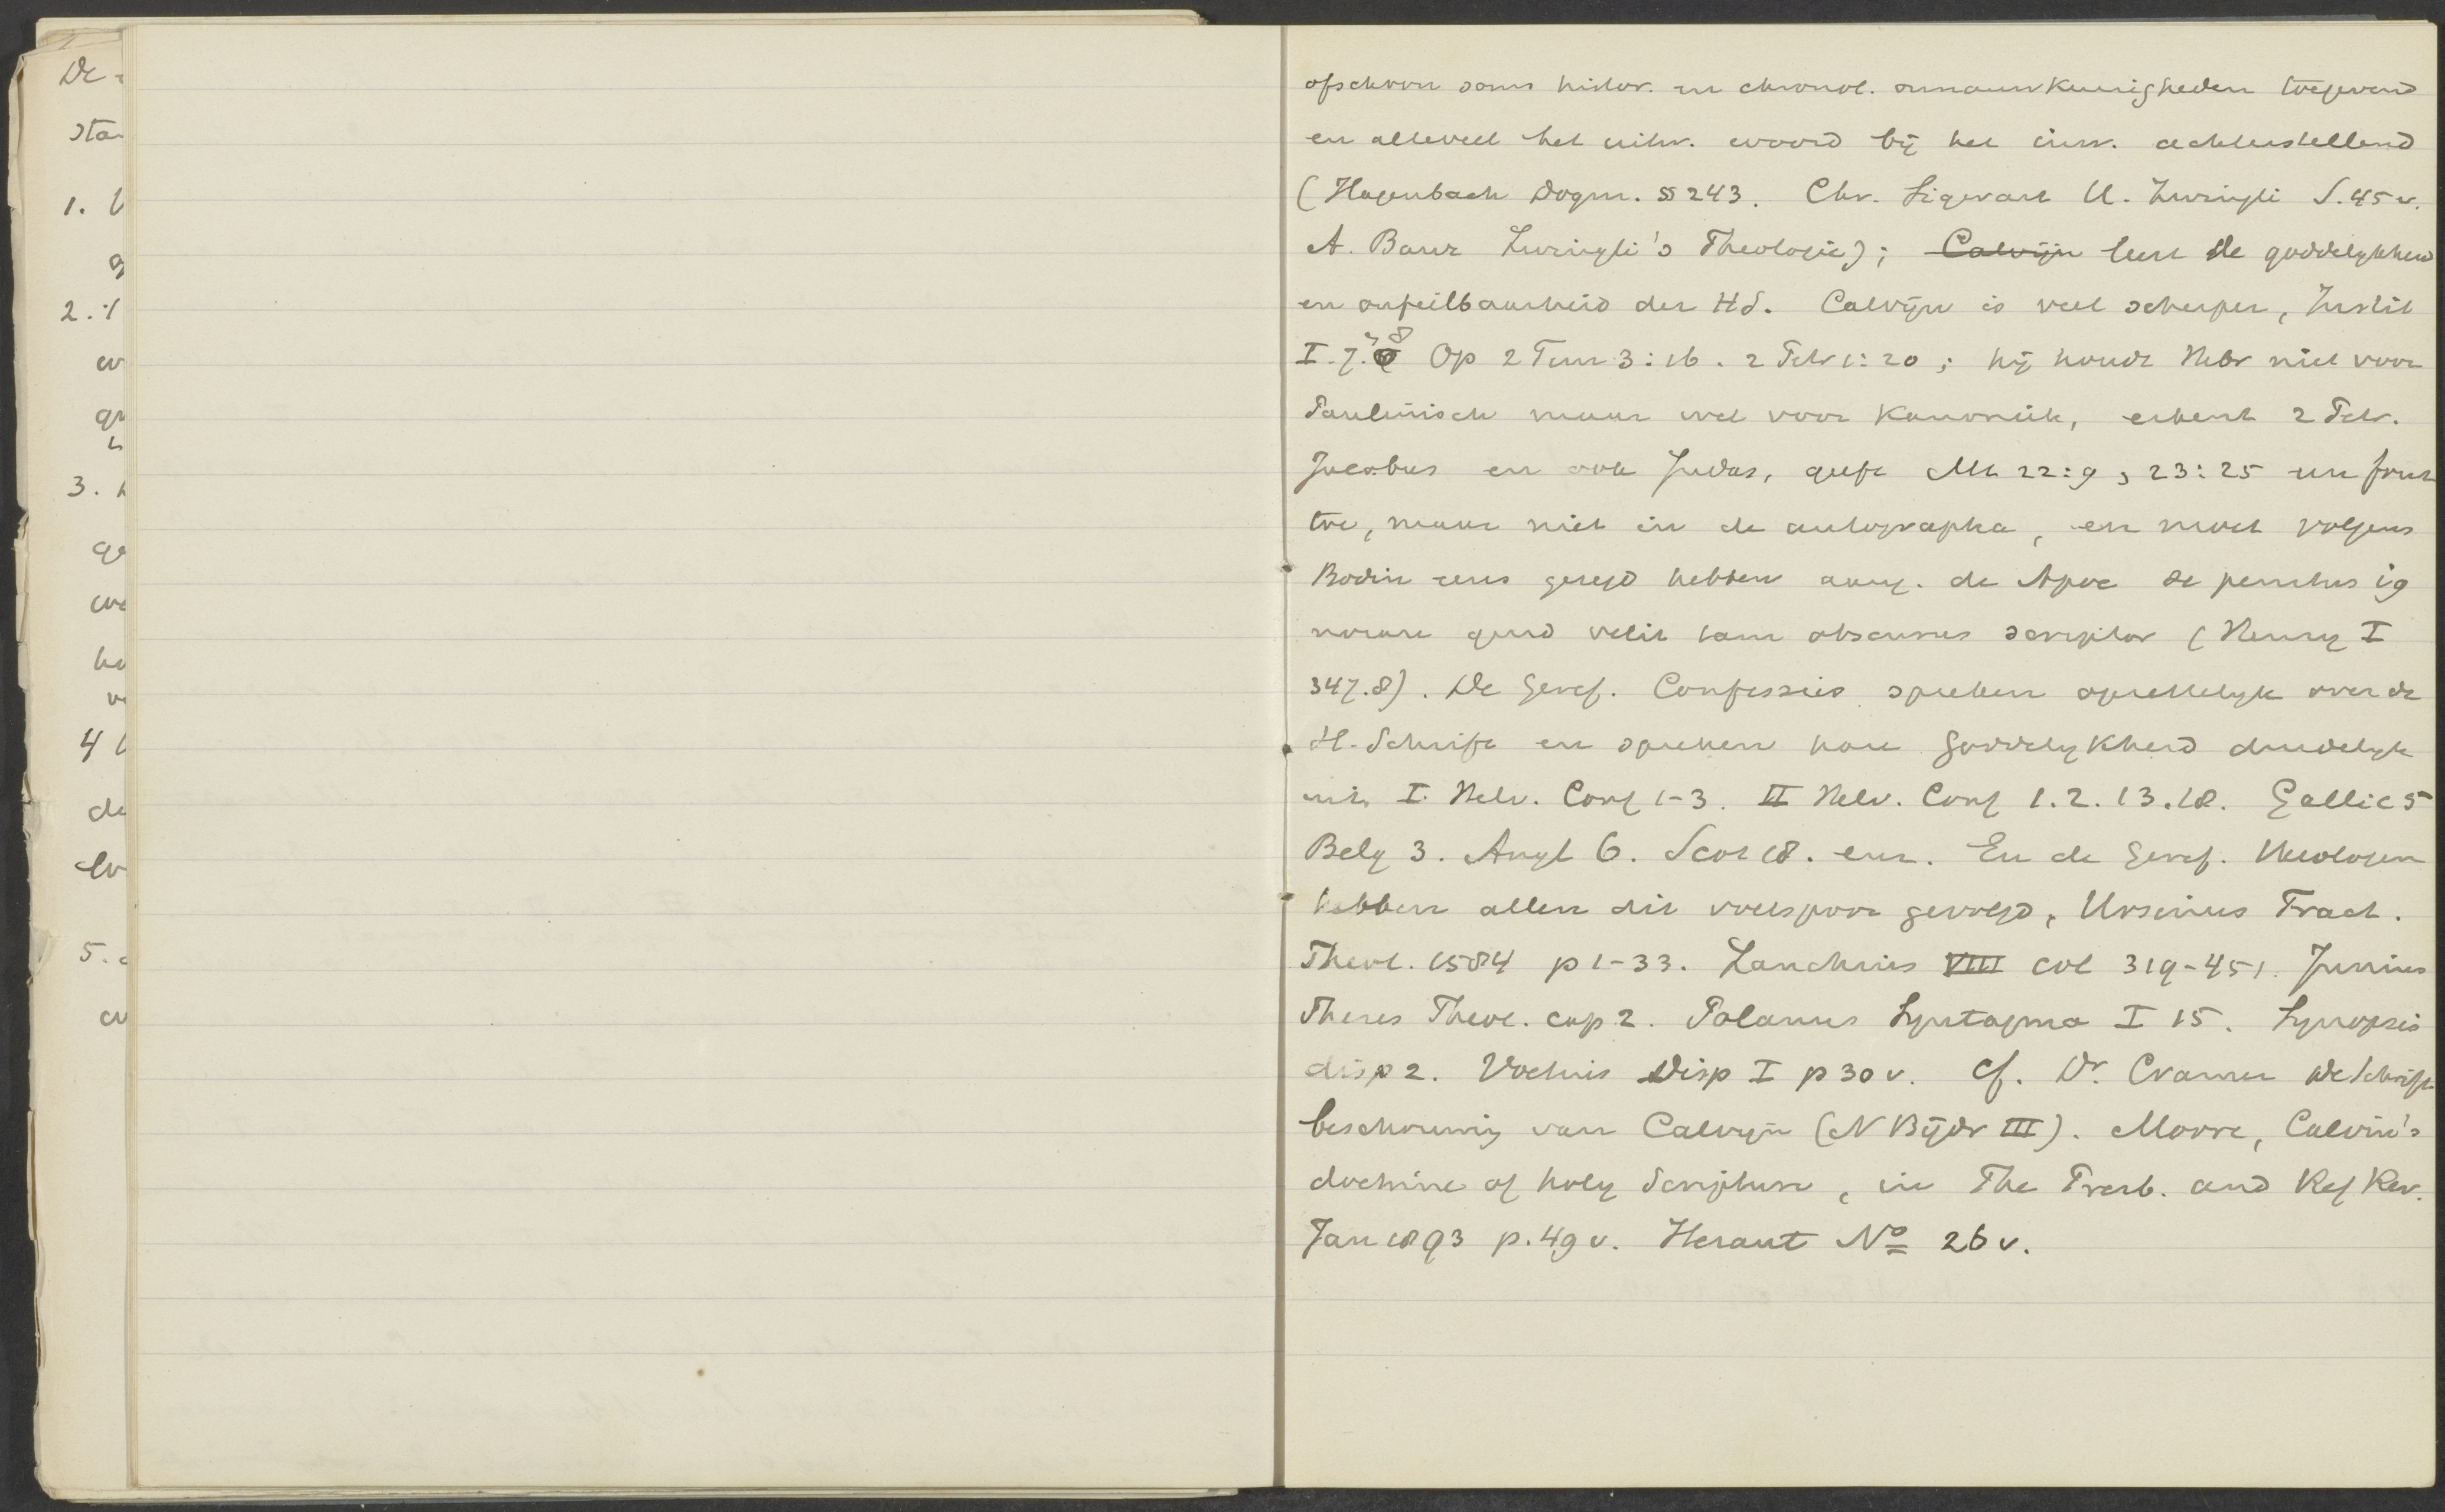 De
sta
1.
g
2.
3.
4
de
5.
ofschoon soms histor. en chronol. onnauwkeurigheden toegevend
en alleveel het uitw. woord bij het inw. achterstellend
(Hagenbach Dogm. §§ 243. Chr. Sigwart U. Zwingli S. 45 v.
A. Baur Zwingli's Theologie); Calvijn leert de goddelykheid
en onfeilbaarheid der HS. Calvijn is veel scherper, Instit
I. 7. 8 Op 2 Tim 3:16. 2 Petr 1:20; hij houdt Hebr niet voor
Paulinisch maar wel voor kanoniek, erkent 2 Petr.
Jacobus en ook Judas, geeft Mt 22:9, 23:25 een fout
toe, maar niet in de autographa, en moet volgens
Bodin eens gezegd hebben aang. de Apoc se penitus ig
norare quid velit tam obscurus scriptor (Henry I
347.8). De Geref. Confessies spreken opzettelyk over de
H. Schrift en spreken hare Goddelykheid duidelyk
uit. I. Helv. Conf 1-3. II Helv. Conf 1. 2. 13. 18. Gallic 5
Belg 3. Angl 6. Scot 18. enz. En de Geref. Theologen
hebben allen dit voetspoor gevolgd, Ursinus Tract.
Theol. 1584 p 1-33. Zanchius VIII col 319-451. Junius
Theses Theol. cap 2. Polanus Syntagma I 15. Synopsis
disp 2. Voetius Disp I p 30 v. cf. Dr. Cramer De Schrift
beschouwing van Calvijn (N Bijdr III). Moore, Calvin's
doctrine of holy Scripture, in The Presb. and Ref Rev.
Jan 1893 p. 49 v. Heraut No 26 v.